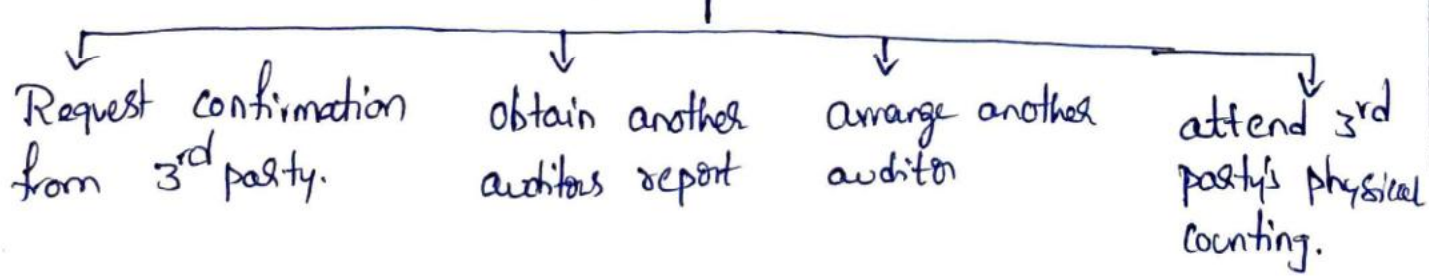 Request confirmation
from 3rd party.
obtain another
auditors report
arrange another
auditor
attend 3rd
party's physical
counting.